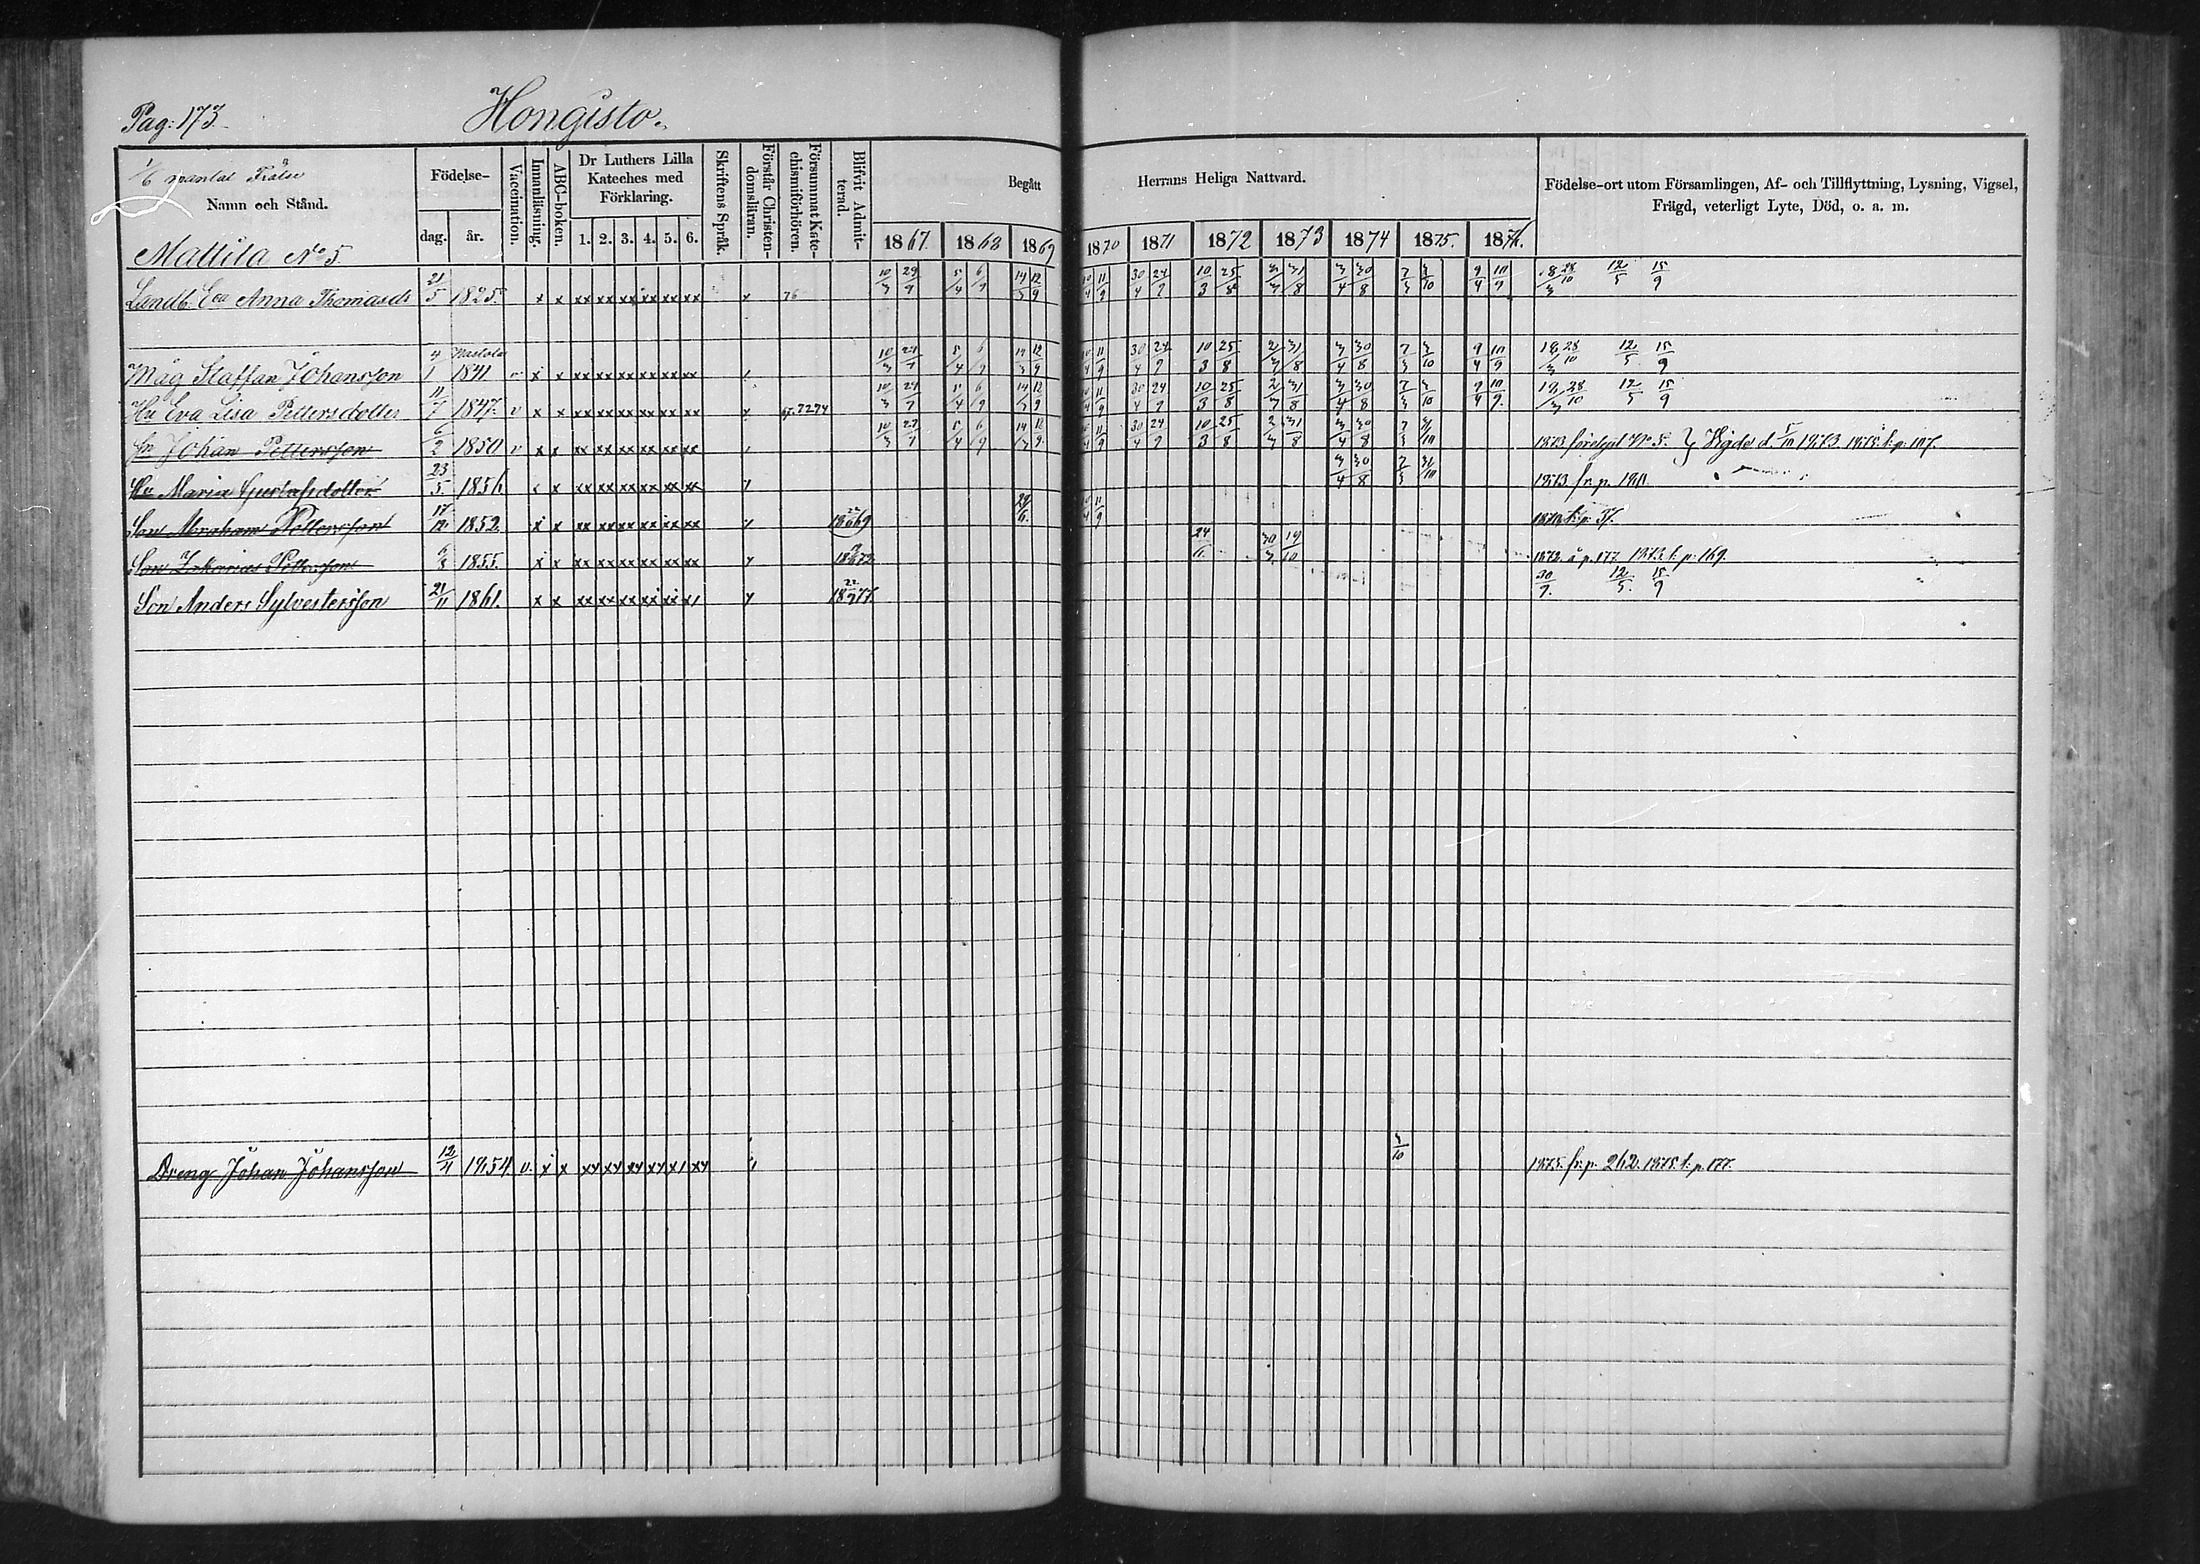 Pag: 173. Hongisto.
1/6 mantal Frälse
Namn och Stånd.
Födelse-
dag. år.
Vaccination.
Innanläsning.
ABC-boken.
Dr Luthers Lilla Kateches med Förklaring.
1. 2. 3. 4. 5. 6.
Skriftens Språk.
Förstår Christendomsläran.
Försummat Katechismiförhören.
Blifvit Admitterad.
Begått Herrans Heliga Nattvard.
1867. 1868 1869 1870 1871 1872 1873 1874 1875. 1876.
Födelse-ort utom Församlingen, Af- och Tillflyttning, Lysning, Vigsel,
Frägd, veterligt Lyte, Död, o. a. m.
Mattila No 5.
Landb. Eva Anna Thomasd 21/5 1825. x x xx xx xx xx xx xx x 76 10/3 29/9 5/4 6/9 14/3 12/9 11/9 30/4 24/9 10/3 25/8 31/8 30/8 9/4 10/9 28/10 12/5 15/9
Måg Staffan Johansson 4/1 1841 x x xx xx xx xx xx xx 5/4 6/9 14/3 12/9 11/9 30/4 24/9 10/3 25/8 31/8 30/8 9/4 10/9 28/10 12/5 15/9
Hu Eva Lisa Pettersdotter 11/7 1847. v x x xx xx xx xx xx xx x 67. 72 74 5/4 6/9 14/3 12/9 11/9 30/4 24/9 10/3 25/8 31/8 30/8 9/4 10/9 28/10 12/5 15/9
Sn Johan Pettersson 6/2 1850 v x x xx xx xx xx xx xx 5/4 6/9 14/3 12/9 11/9 30/4 24/9 10/3 25/8 31/8 30/8
Hu Maria Gustafsdotter 23/5 1856 x x xx xx xx xx xx xx 30/8 31/10 1873 fr. p.
Son Abraham Pettersson 1852. x x xx xx xx xx xx xx 11/9 t. p. 37.
Son Zakarias Pettersson 6/3 1855. x x xx xx xx xx xx xx 24/11 19/10 1872. å p. 177 1873 t. p. 169.
Son Anders Sylvestersson 21/11 1861. x x xx xx xx xx xx 22/9 1877. 30/9. 12/5. 15/9
Dreng Johan Johansson 12/4 1854 v. x x xx xx xx xx xx 3/10 1875. fr. p. 262. 1875. t. p. 177.